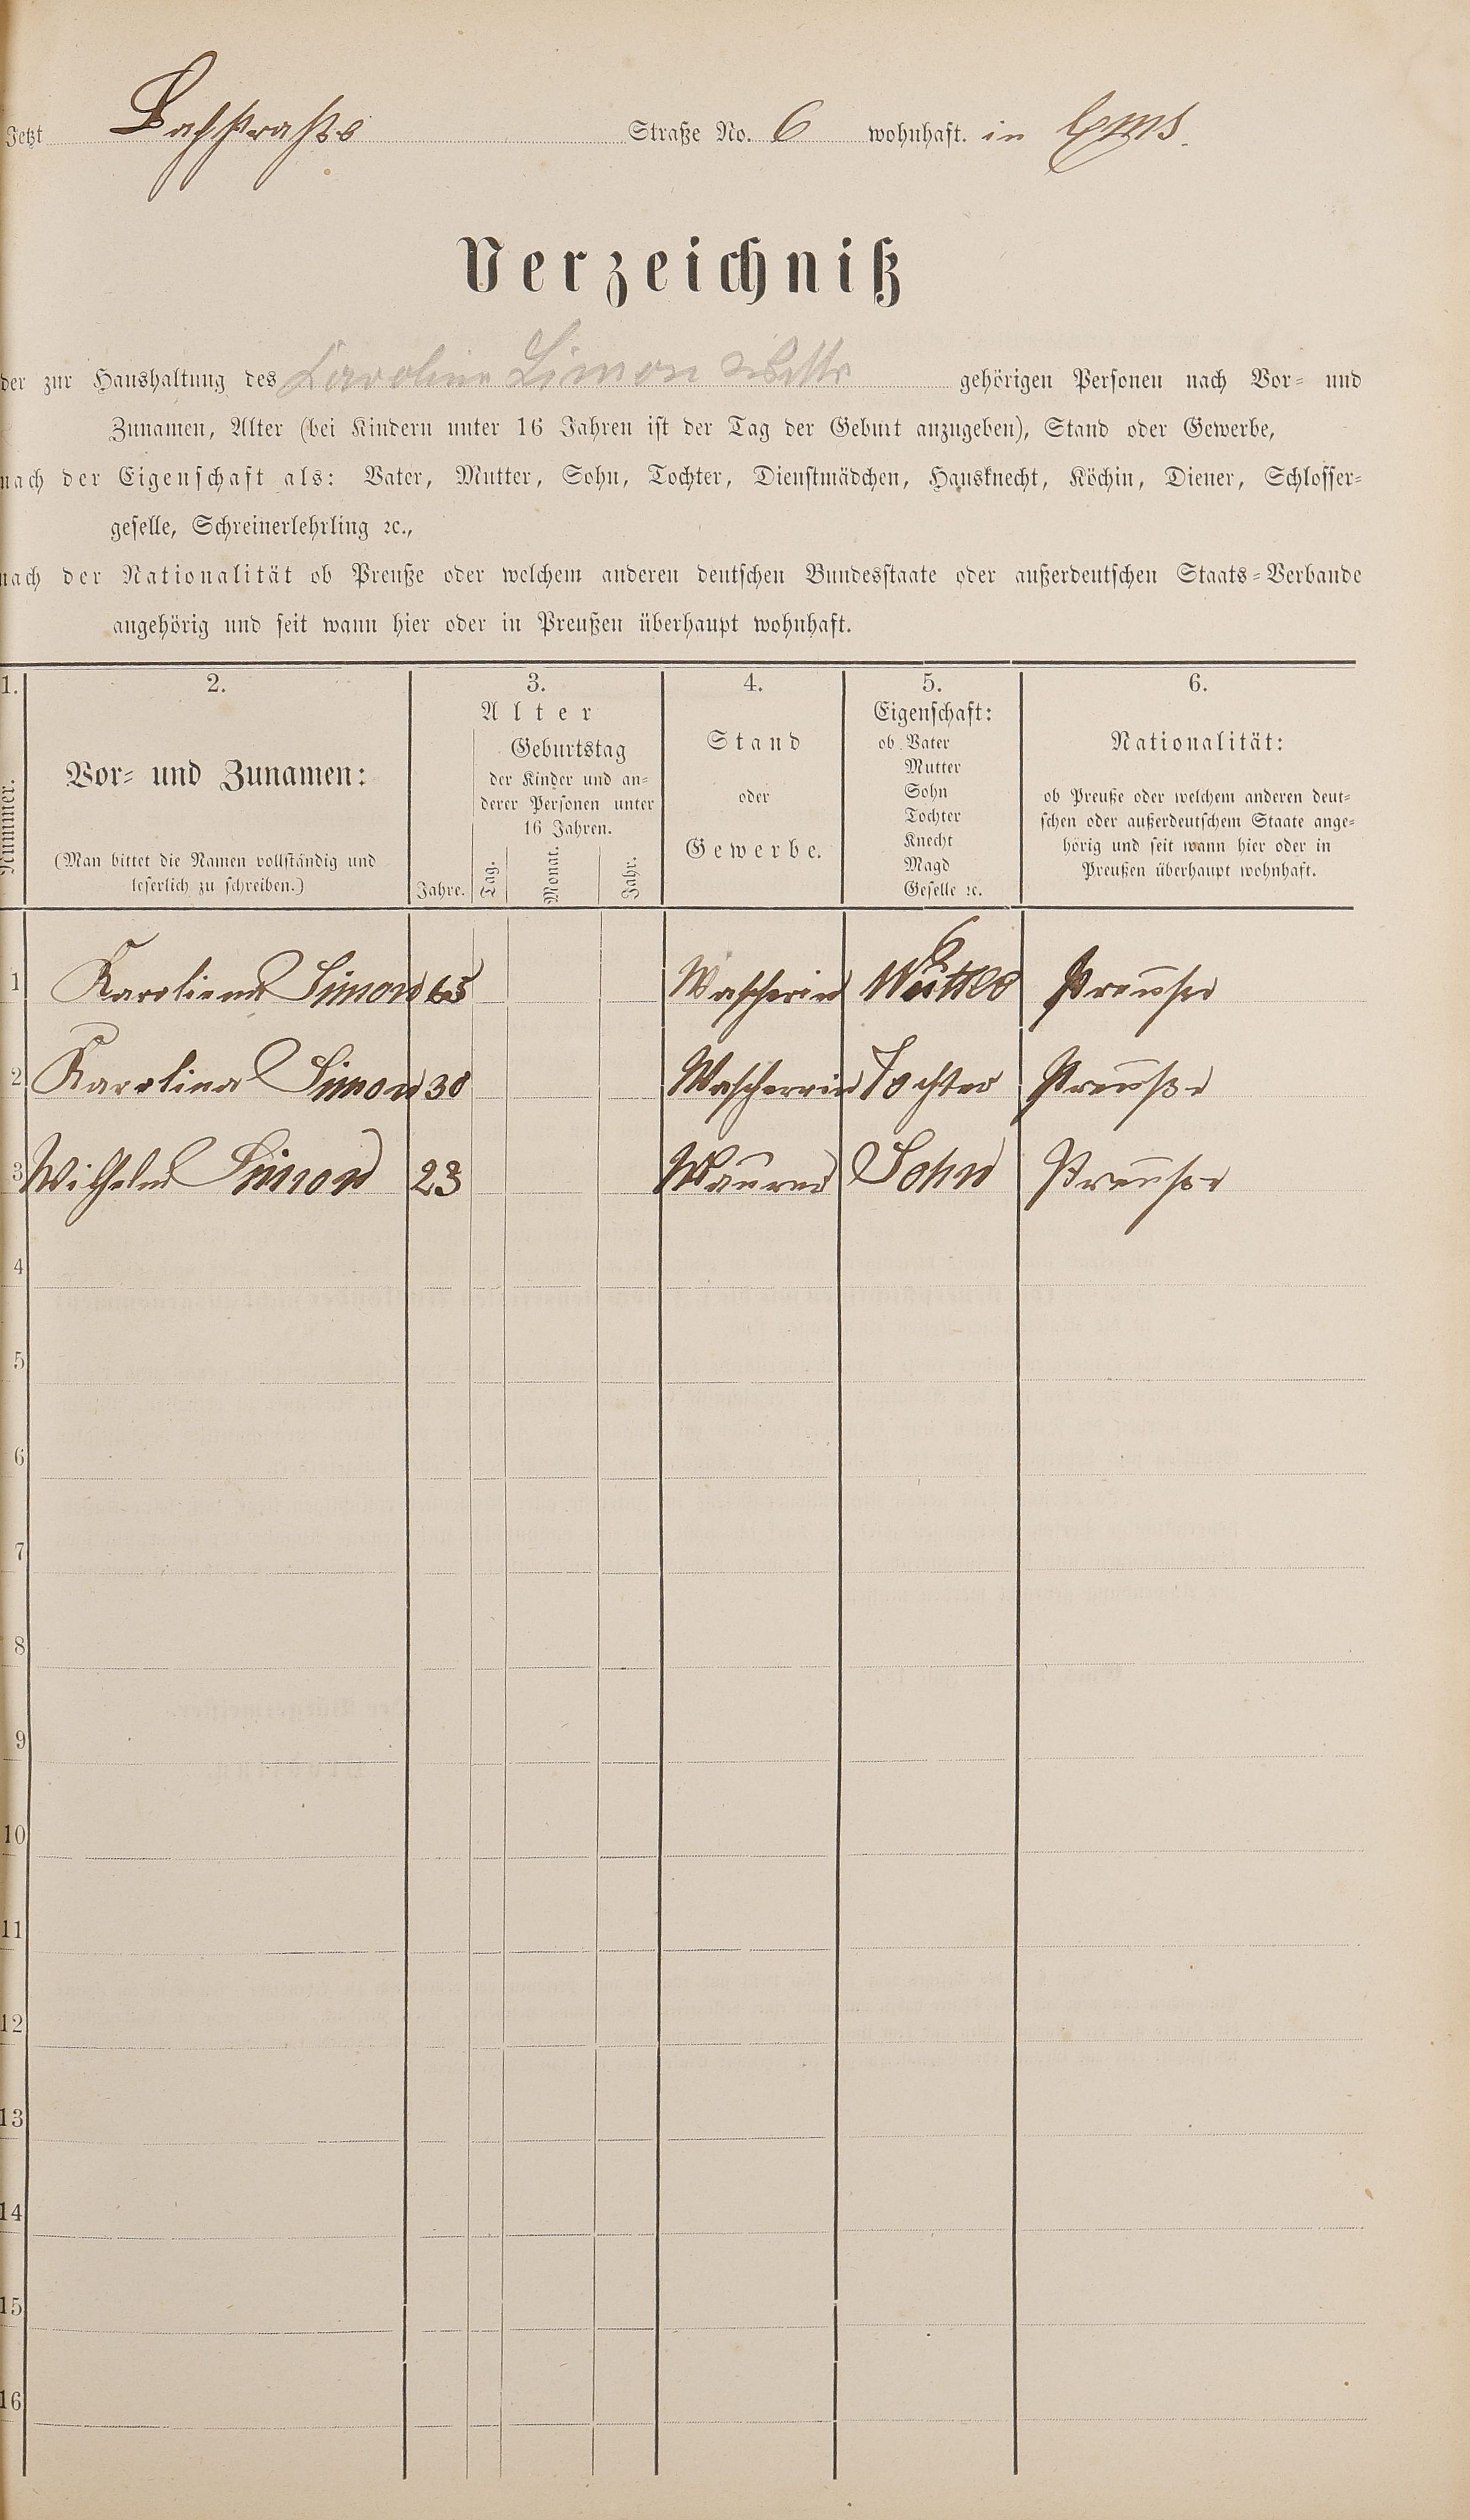 Jetzt Bachstraße Straße No. 6 wohnhaft. in Ems.
Verzeichniß
der zur Haushaltung des Caroline Simon Wttw gehörigen Personen nach Vor- und
Zunamen, Alter (bei Kindern unter 16 Jahren ist der Tag der Geburt anzugeben), Stand oder Gewerbe,
nach der Eigenschaft als: Vater, Mutter, Sohn, Tochter, Dienstmädchen, Hausknecht, Köchin, Diener, Schlosser-
geselle, Schreinerlehrling ꝛc.,
nach der Nationalität ob Preuße oder welchem anderen deutschen Bundesstaate oder außerdeutschen Staats-Verbande
angehörig und seit wann hier oder in Preußen überhaupt wohnhaft.
1.
Nummer.
2.
Vor- und Zunamen:
(Man bittet die Namen vollständig und
leserlich zu schreiben.)
3.
Alter
Jahre.
Geburtstag
der Kinder und an-
derer Personen unter
16 Jahren.
Tag. Monat. Jahr.
4.
Stand
oder
Gewerbe.
5.
Eigenschaft:
ob Vater
Mutter
Sohn
Tochter
Knecht
Magd
Geselle ꝛc.
6.
Nationalität:
ob Preuße oder welchem anderen deut-
schen oder außerdeutschem Staate ange-
hörig und seit wann hier oder in
Preußen überhaupt wohnhaft.
1 Karoliena Simon 65 Wascherin Mutter Preuße
2 Karolina Simon 30 Wascherrin Tochter Preuße
3 Wilhelm Simon 23 Maurer Sohn Preuße
4
5
6
7
8
9
10
11
12
13
14
15
16